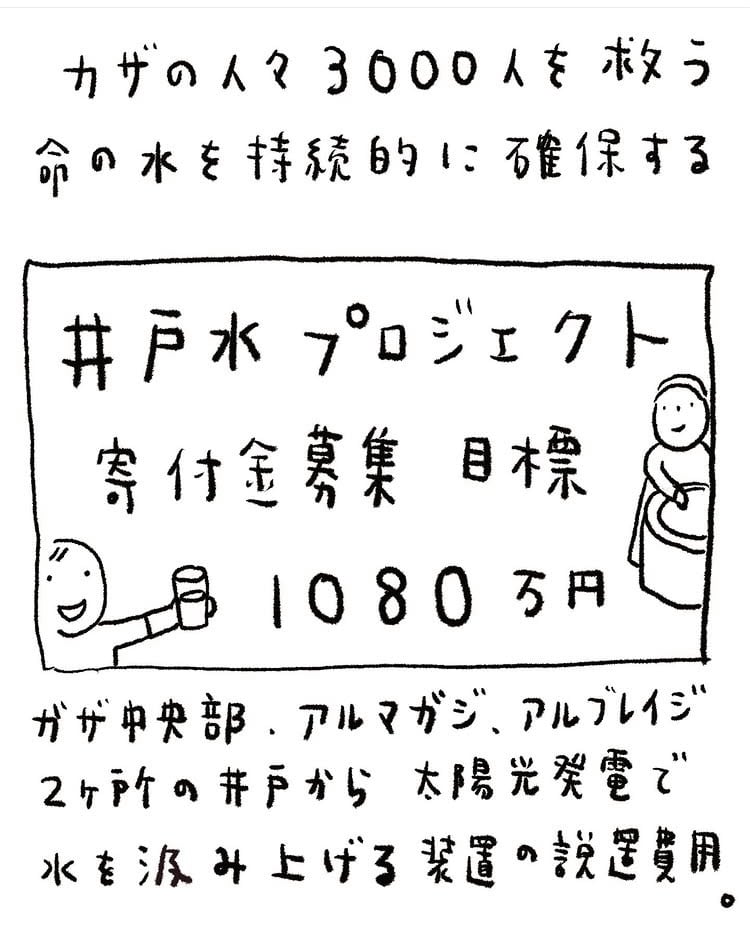 ガザの人々3000人を救う
命の水を持続的に確保する
井戸水プロジェクト
寄付金募集 目標
1080万円
ガザ中央部、アルマガジ、アルブレイジ
2ヶ所の井戸から 太陽光発電で
水を汲み上げる装置の設置費用。